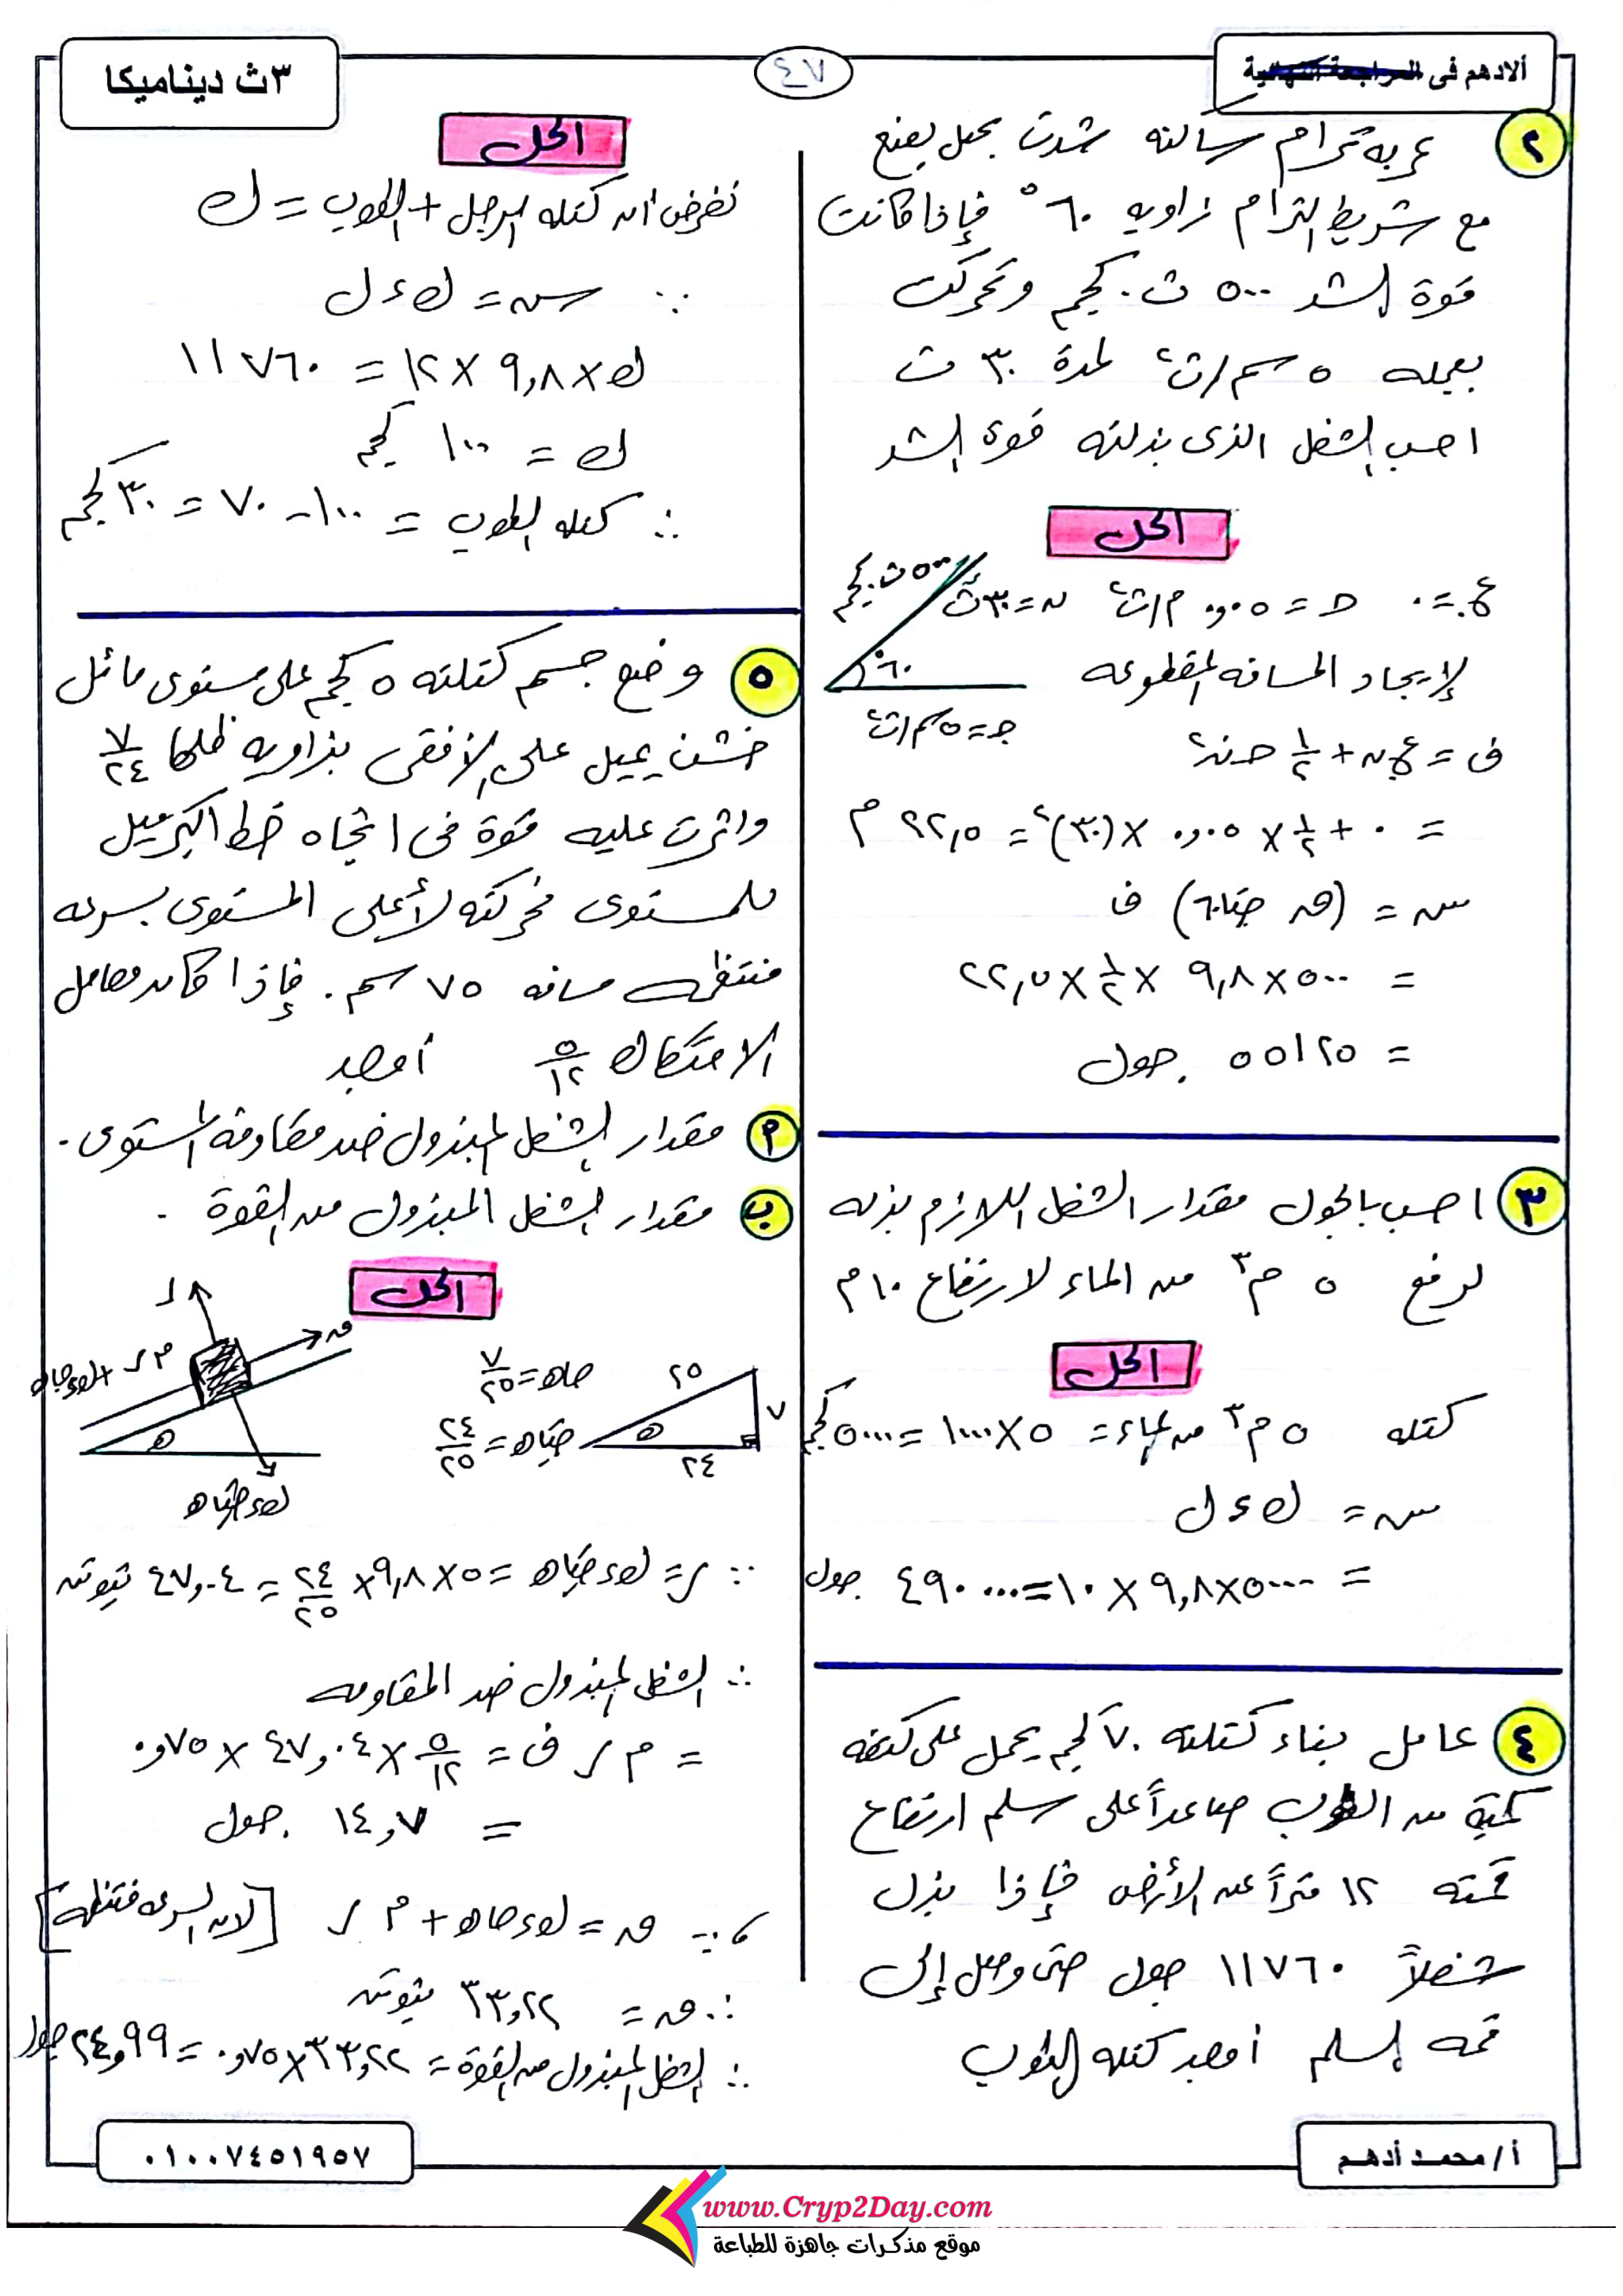 ألادهم فى المراجعة النهائية
٤٧
٣ث ديناميكا
٢ عربه ترام ساكنه شدت بحبل يصنع
مع شريط الترام زاويه ٦٠° فإذا كانت
قوة الشد ٥٠٠ ث.كجم وتحركت
بعجله ٥ سم/ث٢ لمدة ٣٠ ث
احسب الشغل الذى بذلته قوة الشد
الحل
ع. = ٠ حـ = ٠,٠٥ م/ث٢ ن = ٣٠ ث
٥٠٠ ث.كجم
٦٠°
جـ = ٥ سم/ث٢
لإيجاد المسافه المقطوعه
ف = ع.ن + ١/٢ حـ ن٢
= ٠ + ١/٢ × ٠,٠٥ × (٣٠)٢ = ٢٢,٥ م
شـ = (ق جتا٦٠) ف
= ٥٠٠ × ٩,٨ × ١/٢ × ٢٢,٥
= ٥٥١٢٥ جول
٣ احسب بالجول مقدار الشغل اللازم بذله
لرفع ٥ م٣ من الماء لارتفاع ١٠ م
الحل
كتله ٥ م٣ من الماء = ٥ × ١٠٠٠ = ٥٠٠٠ كجم
شـ = ك ء ل
= ٥٠٠٠ × ٩,٨ × ١٠ = ٤٩٠٠٠٠ جول
٤ عامل بناء كتلته ٧٠ كجم يحمل على كتفه
كمية من الطوب صاعداً على سلم ارتفاع
قمته ١٢ متراً عن الأرض فإذا بذل
شغلاً ١١٧٦٠ جول حتى وصل إلى
قمه السلم أوجد كتله الطوب
الحل
نفرض ان كتله الرجل + الطوب = ك
∵ شـ = ك ء ل
ك × ٩,٨ × ١٢ = ١١٧٦٠
ك = ١٠٠ كجم
∴ كتله الطوب = ١٠٠ - ٧٠ = ٣٠ كجم
٥ وضع جسم كتلته ٥ كجم على مستوى مائل
خشن يميل على الأفقى بزاويه ظلها ٧/٢٤
واثرت عليه قوة فى اتجاه خط اكبر ميل
للمستوى فحركته لأعلى المستوى بسرعه
منتظمه مسافه ٧٥ سم. فإذا كان معامل
الاحتكاك ٥/١٢ أوجد
م مقدار الشغل المبذول ضد مقاومة المستوى.
ب مقدار الشغل المبذول من القوة.
الحل
ر
ق
م ر + ك ء جا هـ
هـ
ك ء جتا هـ
جا هـ = ٧/٢٥
جتا هـ = ٢٤/٢٥
٢٥
٧
هـ
٢٤
∵ ر = ك ء جتا هـ = ٥ × ٩,٨ × ٢٤/٢٥ = ٤٧,٠٤ نيوتن
∴ الشغل المبذول ضد المقاومه
= م ر ف = ٥/١٢ × ٤٧,٠٤ × ٠,٧٥
= ١٤,٧ جول
، ∵ ق = ك ء جا هـ + م ر [لان السرعه منتظمه]
∴ ق = ٣٣,٢٢ نيوتن
∴ الشغل المبذول من القوة = ٣٣,٢٢ × ٠,٧٥ = ٢٤,٩٩ جول
أ/ محمد أدهم
٠١٠٠٧٤٥١٩٥٧
www.Cryp2Day.com
موقع مذكرات جاهزة للطباعة